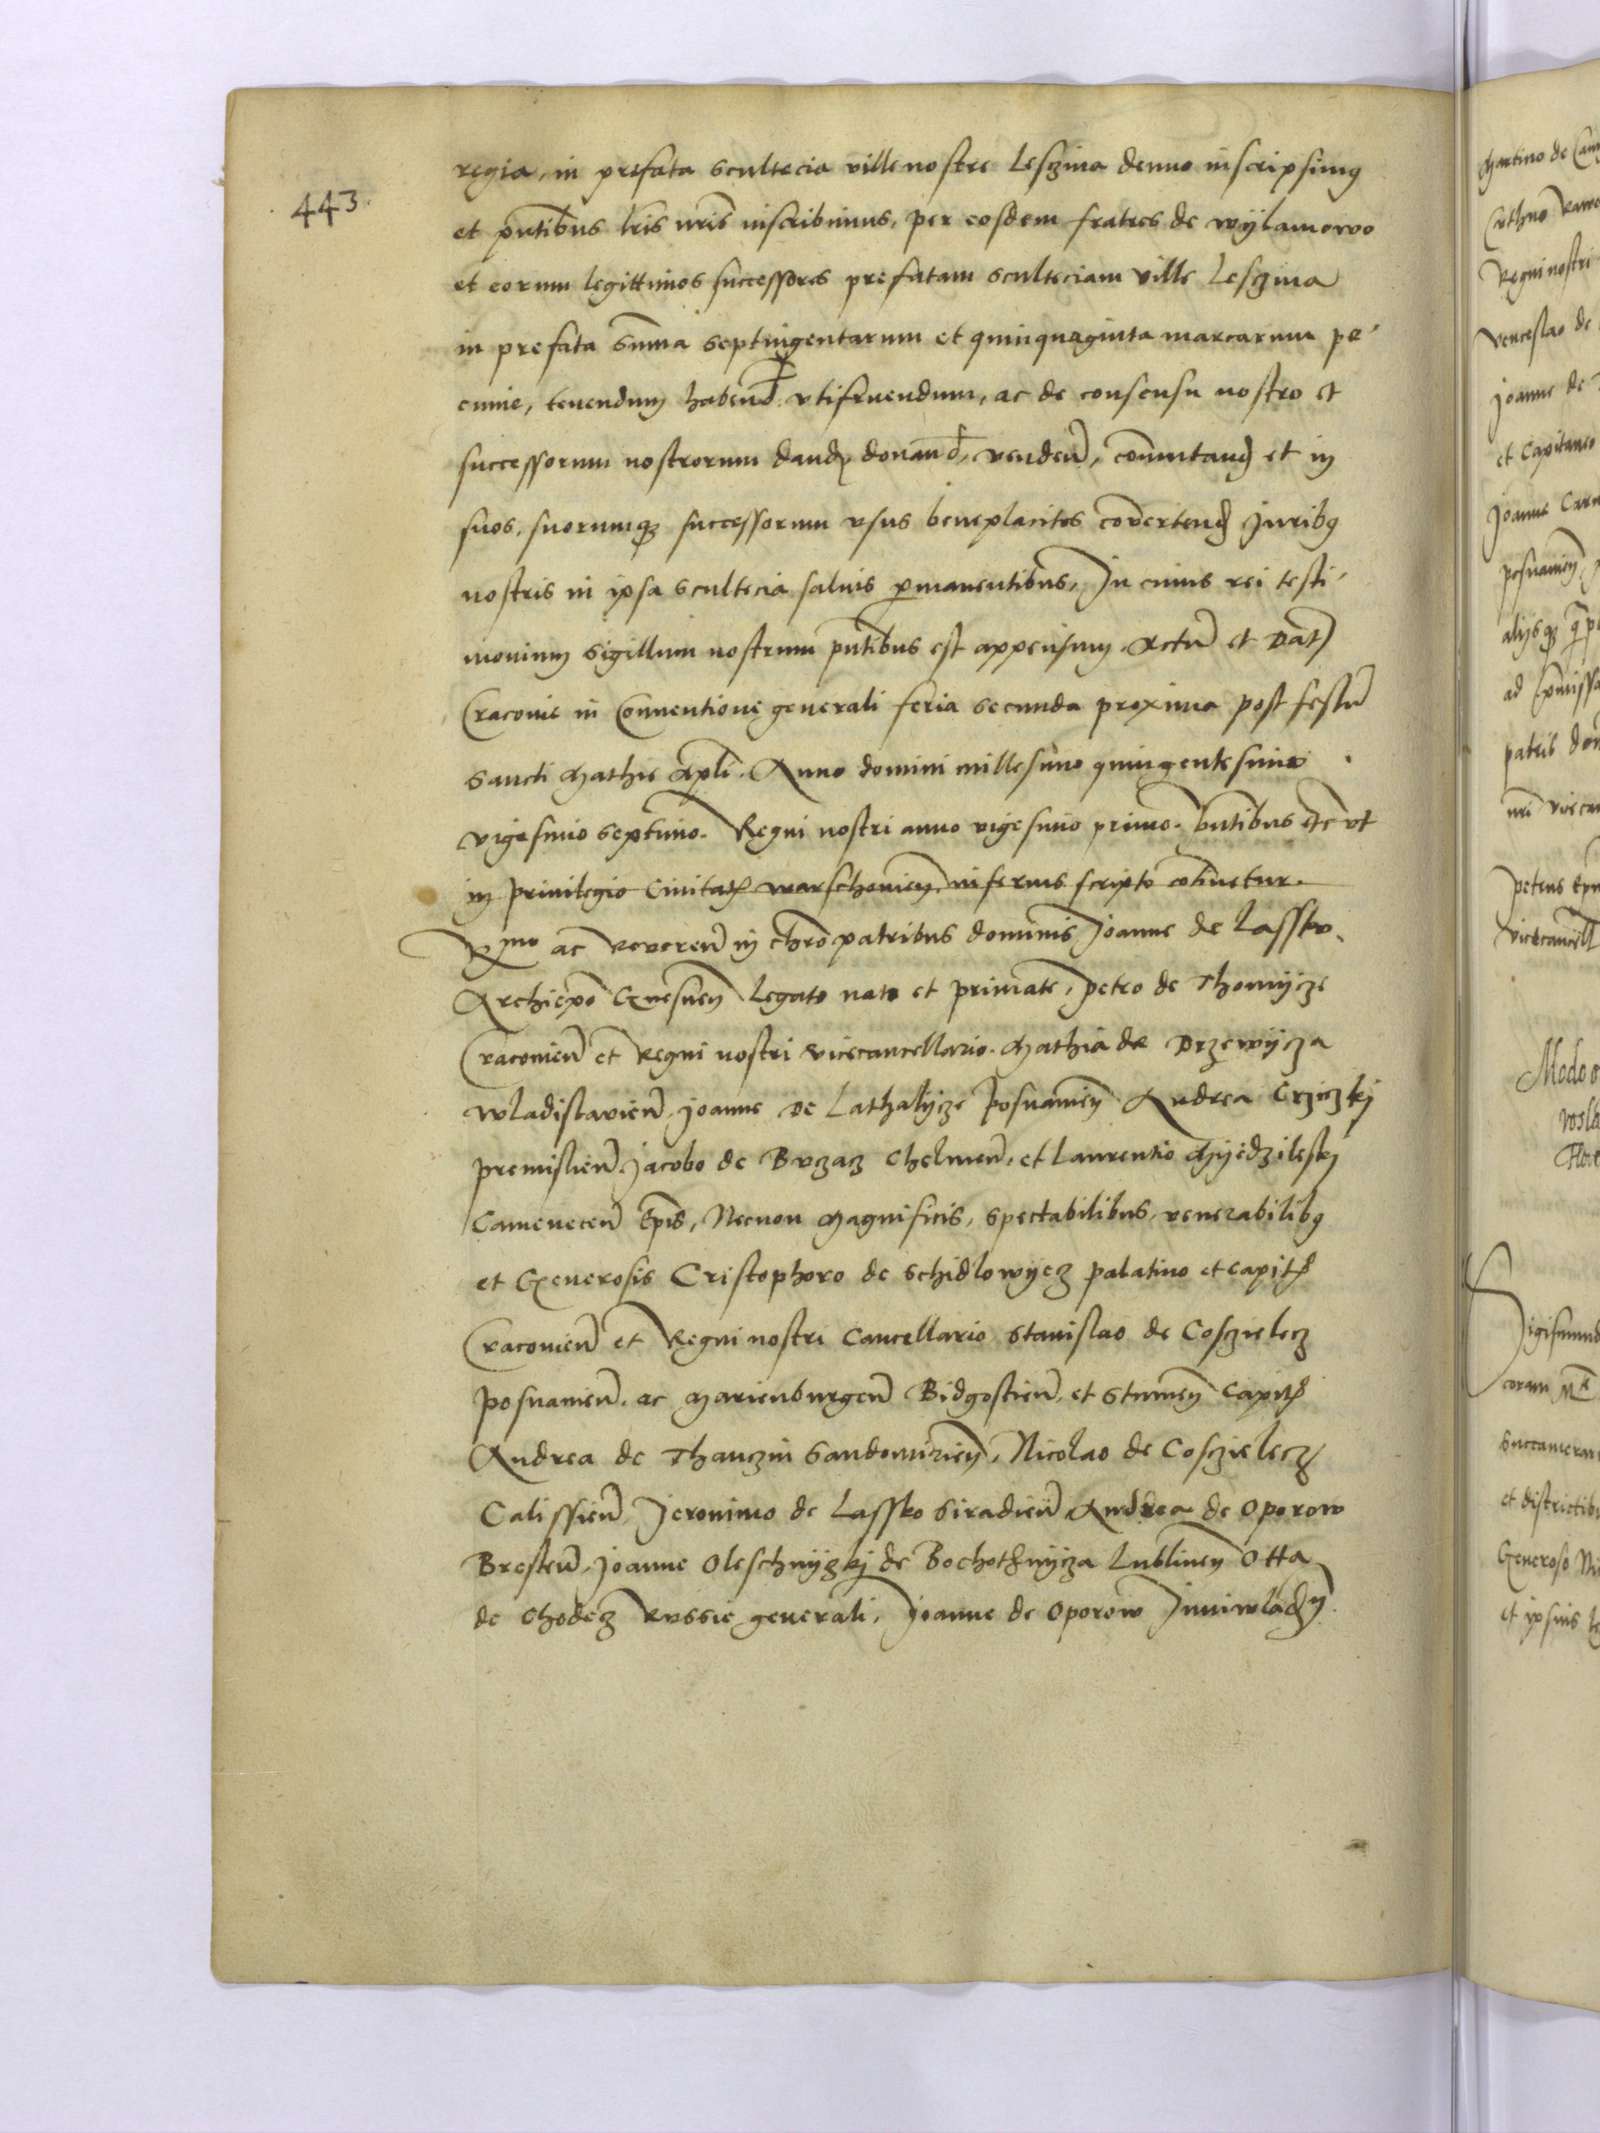 443.
regia, in prefata scultecia ville nostre Lesczina denuo inscripsimus
et pntibus lris nris inscribimus, per eosdem fratres de Wylamowo
et eorum legittimos successores prefatam sculteciam ville Lesczina
in prefata summa septuigentarum et quinquaginta marcarum pe-
cunie, tenendum habend, vtifruendum, ac de consensu nostro et
successorum nostrorum dand, donand, venden, commutand et in
suos, suorumqz successorum vsus beneplacitos convertend Juribus
nostris in ipsa scultecia saluis permanentibus, In cuius rei testi-
monium sigillum nostrum pntibus est appensum. Actum et Dat
Cracovie in Conuentione generali feria secunda proxima post festum
sancti Mathie Apli. Anno domini millesimo quingentesimo
vigesimo septimo. Regni nostri anno vigesimo primo. pntibus etc vt
in priuilegio Ciuitatis warschouien, inferius scripto continetur.
Rmo ac Reueren in christo patribus dominis Joanne de Lassko,
Archiepo Gnesnen Legato nato et primate, Petro de Thomycze
Cracouien et Regni nostri vicecancellario. Mathia de Drzewycza
wladislauien, Joanne De Lathalycze Posnamen Andrea Crziczky
premislien, Jacobo de Buczacz Chelmen, et Laurentio Myedzilesky
Camenecen Epis, Necnon Magnificis, spectabilibus, venerabilibus
et Generosis Cristophoro de Schidlowyecz palatino et capit
Cracouien et Regni nostri Cancellario Stanislao de Cosczielecz
Posnamien. ac Marienburgen Bidgostien, et Stumen Capit
Andrea de Thanczin Sandomirien, Nicolao de Cosczielecz
Calissien, Jeronimo de Lassko Siradien Andrea de Oporow
Bresten, Joanne Oleschnyczky de Bochothnycza Lublinen Otta
de Chodecz Russie generali, Joanne de Oporow Juniwladn
Martino de
Regni nostri
venceslao de
Joanne de
et Capitaneo
Joanne
posnamen,
alijsqz
ad
patris
nri
Petrus
vicecancell
Modo
Sigismund
coram
succamerar
et districtib
Generoso
et ipsius